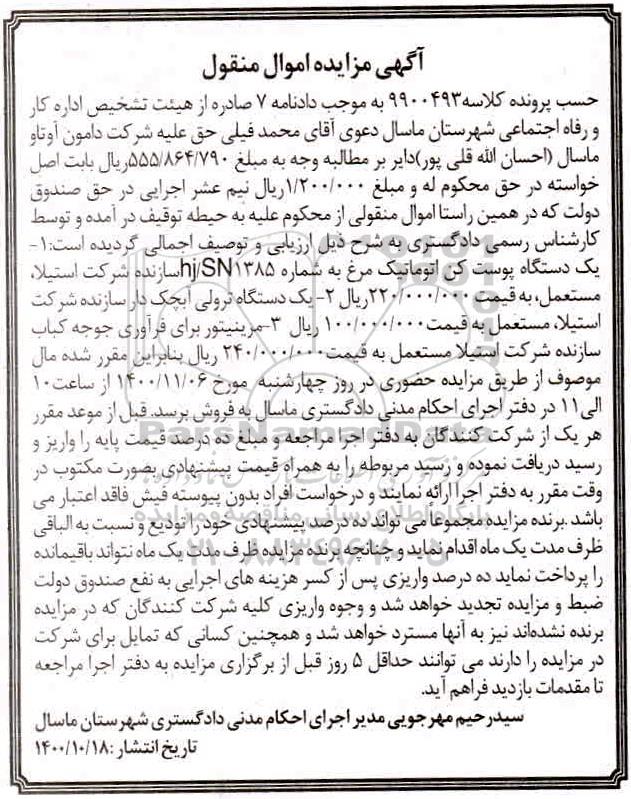 آگهی مزایده اموال منقول
حسب پرونده کلاسه ۹۹۰۰۴۹۳ به موجب دادنامه ۷ صادره از هیئت تشخیص اداره کار
و رفاه اجتماعی شهرستان ماسال دعوی آقای محمد فیلی حق علیه شرکت دامون آوتاو
ماسال (احسان الله قلی پور)دایر بر مطالبه وجه به مبلغ ۵۵۵/۸۶۴/۷۹۰ریال بابت اصل
خواسته در حق محکوم له و مبلغ ۱/۲۰۰/۰۰۰ریال نیم عشر اجرایی در حق صندوق
دولت که در همین راستا اموال منقولی از محکوم علیه به حیطه توقیف در آمده و توسط
کارشناس رسمی دادگستری به شرح ذیل ارزیابی و توصیف اجمالی گردیده است:۱-
یک دستگاه پوست کن اتوماتیک مرغ به شماره hj/SN۱۳۸۵سازنده شرکت استیلا،
مستعمل، به قیمت ۲۲۰/۰۰۰/۰۰۰ریال ۲- یک دستگاه ترولی آبچک دار سازنده شرکت
استیلا، مستعمل به قیمت۱۰۰/۰۰۰/۰۰۰ ریال ۳-مرینیتور برای فرآوری جوجه کباب
سازنده شرکت استیلا مستعمل به قیمت۲۴۰/۰۰۰/۰۰۰ ریال بنابراین مقرر شده مال
موصوف از طریق مزایده حضوری در روز چهارشنبه مورخ ۱۴۰۰/۱۱/۰۶ از ساعت۱۰
الی۱۱ در دفتر اجرای احکام مدنی دادگستری ماسال به فروش برسد. قبل از موعد مقرر
هر یک از شرکت کنندگان به دفتر اجرا مراجعه و مبلغ ده درصد قیمت پایه را واریز و
رسید دریافت نموده و رسید مربوطه را به همراه قیمت پیشنهادی بصورت مکتوب در
وقت مقرر به دفتر اجرا ارائه نمایند و درخواست افراد بدون پیوسته فیش فاقد اعتبار می
باشد .برنده مزایده مجموعا می تواند ده درصد پیشنهادی خود را تودیع و نسبت به الباقی
ظرف مدت یک ماه اقدام نماید و چنانچه برنده مزایده ظرف مدت یک ماه نتواند باقیمانده
را پرداخت نماید ده درصد واریزی پس از کسر هزینه های اجرایی به نفع صندوق دولت
ضبط و مزایده تجدید خواهد شد و وجوه واریزی کلیه شرکت کنندگان که در مزایده
برنده نشده‌اند نیز به آنها مسترد خواهد شد و همچنین کسانی که تمایل برای شرکت
در مزایده را دارند می توانند حداقل ۵ روز قبل از برگزاری مزایده به دفتر اجرا مراجعه
تا مقدمات بازدید فراهم آید.
سیدرحیم مهرجویی مدیر اجرای احکام مدنی دادگستری شهرستان ماسال
تاریخ انتشار :۱۴۰۰/۱۰/۱۸
ParsNamadData
پایگاه اطلاع رسانی مناقصه و مزایده